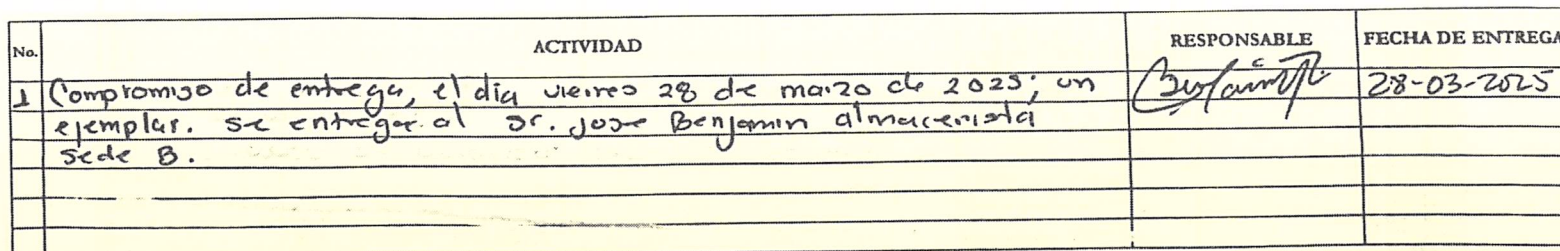 No. ACTIVIDAD RESPONSABLE FECHA DE ENTREGA
1 Compromiso de entrega, el día vieires 28 de marzo de 2025; un 28-03-2025
ejemplar. se entregar al sr. Jose Benjamin almacenista
sede B.